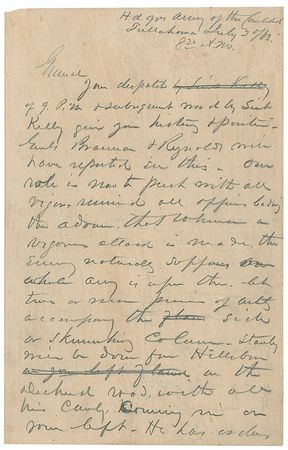 Hd qrs Army of the Cumberland
Tullahoma July 3d /63.
8 30 A.M.
General
Your despatch by Lieut Kelly
of 9. P.M. & subsequent word by Lieut
Kelly give your history & position -
Genls Brannan & Reynolds will
have reported ere this. - Our
role is now to push with all
vigor, remind all officers leading
the advance, that whenever a
vigorous attack is made, the
Enemy naturally supposes our
whole army is upon them. Let
two or more pieces of arty
accompany the side
or skirmishing Column. - Stanley
will be down from Hillsboro
on the
decherd road, with all
his Cavly. Coming in on
your left - He has orders